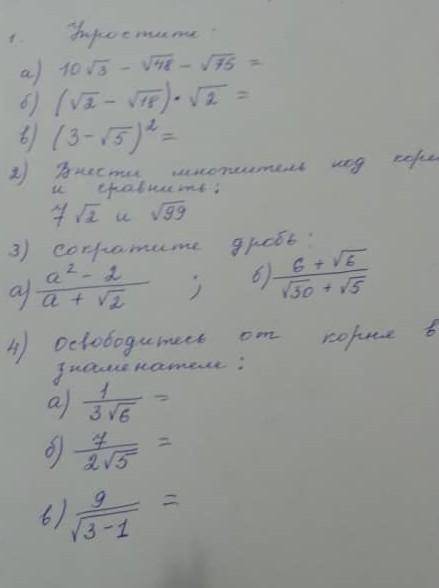 1. Упростите:
а) 10√3 - √48 - √75 =
б) (√2 - √18) · √2 =
в) (3 - √5)² =
2) Внести множитель под корен
и сравнить:
7√2 и √99
3) сократите дробь:
а) (a² - 2)/(a + √2) ; б) (6 + √6)/(√30 + √5)
4) освободитесь от корня в
знаменателе:
а) 1/(3√6) =
б) 7/(2√5) =
в) 9/√(3-1) =